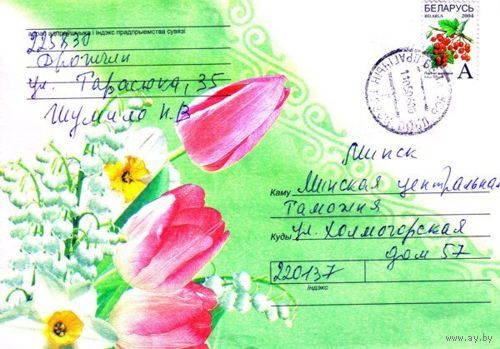 БЕЛАРУСЬ
BELARUS 2004
A
індэкс прадпрыемства сувязі
225830
Дрогичин
ул. Тарасюка, 35
Шумило Н.В
Минск
Каму Минская центральная
Таможня
Куды ул. Холмогорская
дом 57
220137
Індэкс
www.ay.by